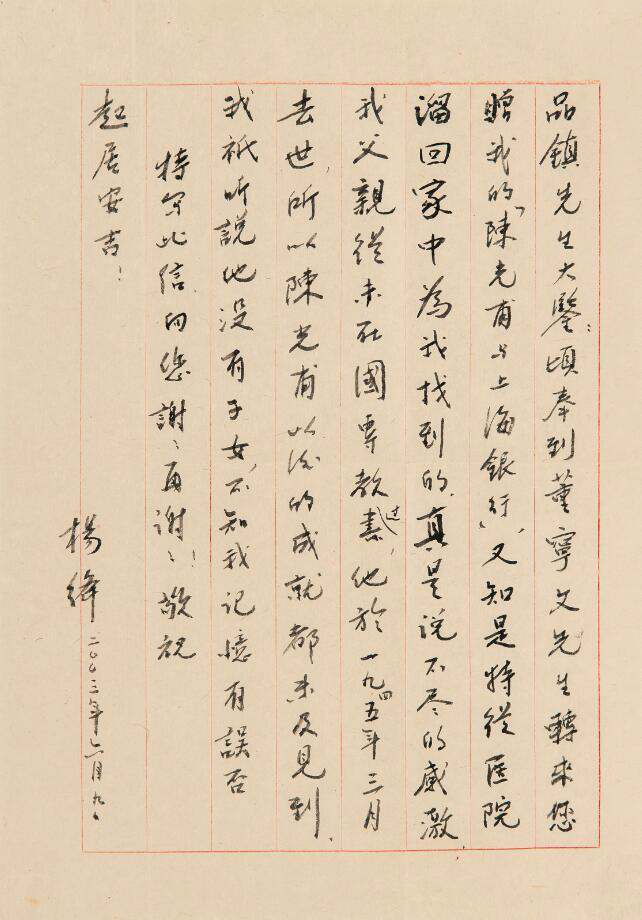 品鎮先生大鑒：頃奉到董寧文先生轉來您
贈我的「陳光甫与上海銀行」，又知是特從医院
溜回家中為我找到的，真是说不尽的感激
我父親從未在國専教過書，他於一九四五年三月
去世，所以陳光甫以後的成就都未及見到．
我祇听説他没有子女，不知我记憶有誤否
特写此信向您謝謝再謝謝！敬祝
起居安吉！
楊絳 二〇〇三年六月九日